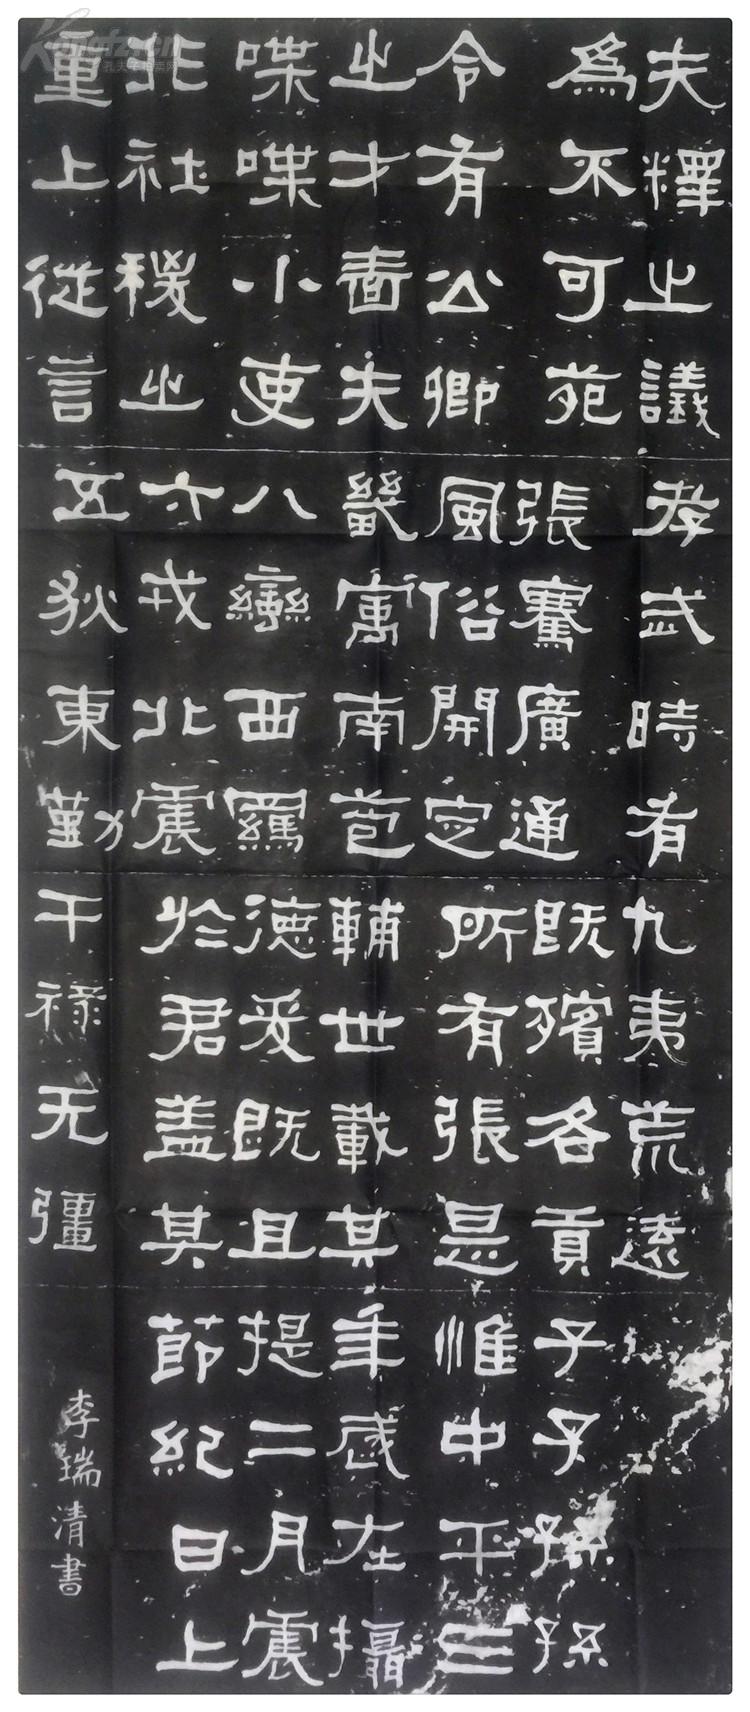 夫釋之議孝武時有九夷荒遠
為不可苑張騫廣通既殯各貢子子孫孫
令有公卿風俗開定所有張是惟中平三
之才嗇夫畿寓南苞輔世載其年感在攝
喋喋小吏八蠻西羈德爰既且提二月震
北社稷之六戎北震於君盖其節紀日上
重上從言五狄東勤干祿无彊
李瑞清書
Kongfz.cn
孔夫子拍卖网